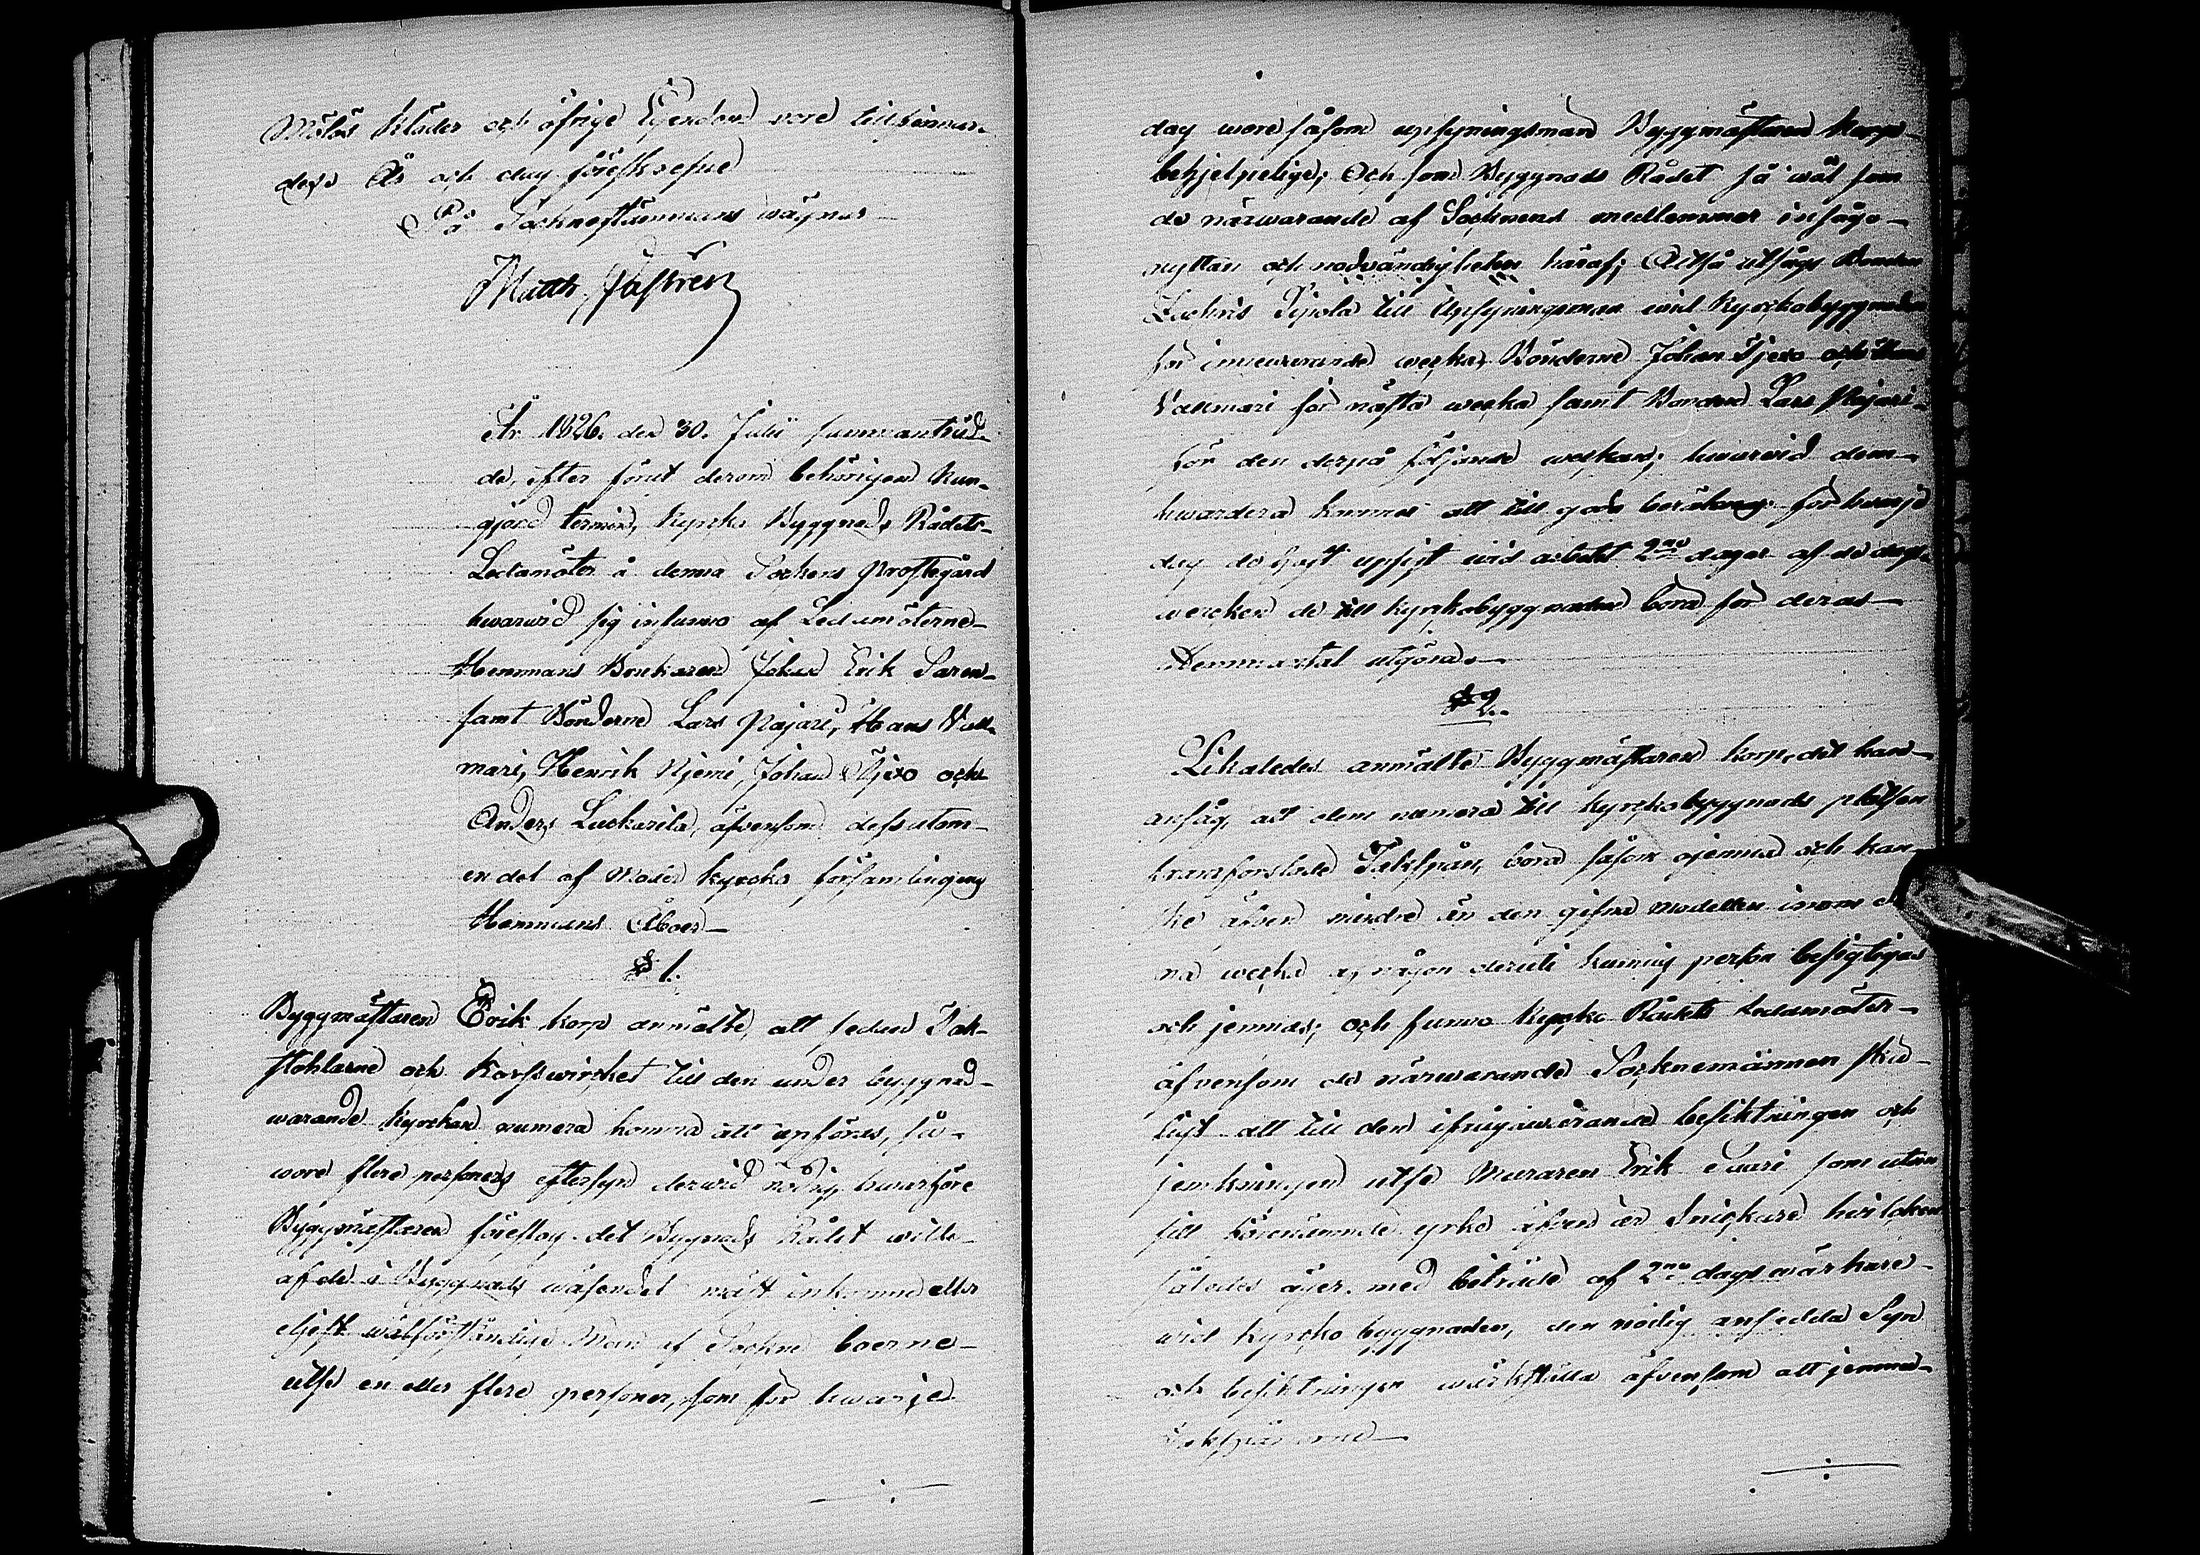 Mölös Kläder och öfrige Egendom vore tillsinnan-
des. År och dag föreskrefne
På Socknestämmans vägnar
Matth. Castren
År 1826. den 30. Julii sammanträd-
de, efter förut derom behörigen kun-
gjord termin, Kyrcko Byggnads Rådets
Ledamöter å denna Sockens Prostegård
hwarwid sig infunno af Ledamöterne
Hemmans Brukaren Johan Erik Saren
samt Bönderne Lars Pajari, Hans Vall-
mari, Henrik Njemi, Johan Öjxo och
Anders Luckarila, äfvensom dessutom
en del af Moder Kyrcko församlingens
Hemmans Åboer
§ 1.
Byggmästaren Erik Korp anmälte, att sedan Tak-
stohlarne och Korsswircket till den under byggnad
warande Kyrckan numera komma att upföras, så
wore flere personers eftersyn derwid nödig, hwarföre
Byggmästaren föreslog det Bygnads Rådet wille
af de i Byggnads wäsendet mäst inkomne eller
eljest wälförståndige Män af Sockne boerne
utse en eller flere personer, som för hwarje
dag wore såsom upsyningsman Byggmästaren Korp
behjelpelige; Och som Byggnads Rådet så wäl som
de närwarande af Socknens medlemmar insågo
nyttan och nödvändigheten häraf; Altså utsågs Bonden
Zachris Pipola till Upsyningsman wid Kyrckobyggnaden
för innewarande wecka, Bönderne Johan Öjexo och Hans
Vallmari för nästa wecka samt Bonden Lars Pajari
för den derpå följande weckan; hwarwid dem
hwardera kommer att till godo beräknas för hwarje
dag de haft upsigt wid arbetet 2ne dagar af de dags-
wercken de till Kyrckobyggnaden böra för deras
Hemmantal utgöra.
§ 2.
Likaledes anmälte Byggmästaren Korp, det han
ansåg, att dem numera till Kyrckobyggnads platsen
framforslade Takspån, böra såsom ojemna och kan-
ske äfven mindre än den gifna modellen inom den-
na wecka af någon deruti kunnig person besigtigas
och jemnas; och funno Kyrcko Rådets Ledamöter
äfvensom de närwarande Socknemännen skä-
ligt att till den ifrågawarande besiktningen och
jemkningen utse Muraren Erik Saari som utom
sitt förenämnde yrke äfven är Snickare hvilcken
således äger, med biträde af 2ne dagswärkare
wid Kyrcko byggnaden, den nödig ansedda Syn
och besiktningen wärkställa äfvensom att jemna
Takspånorne